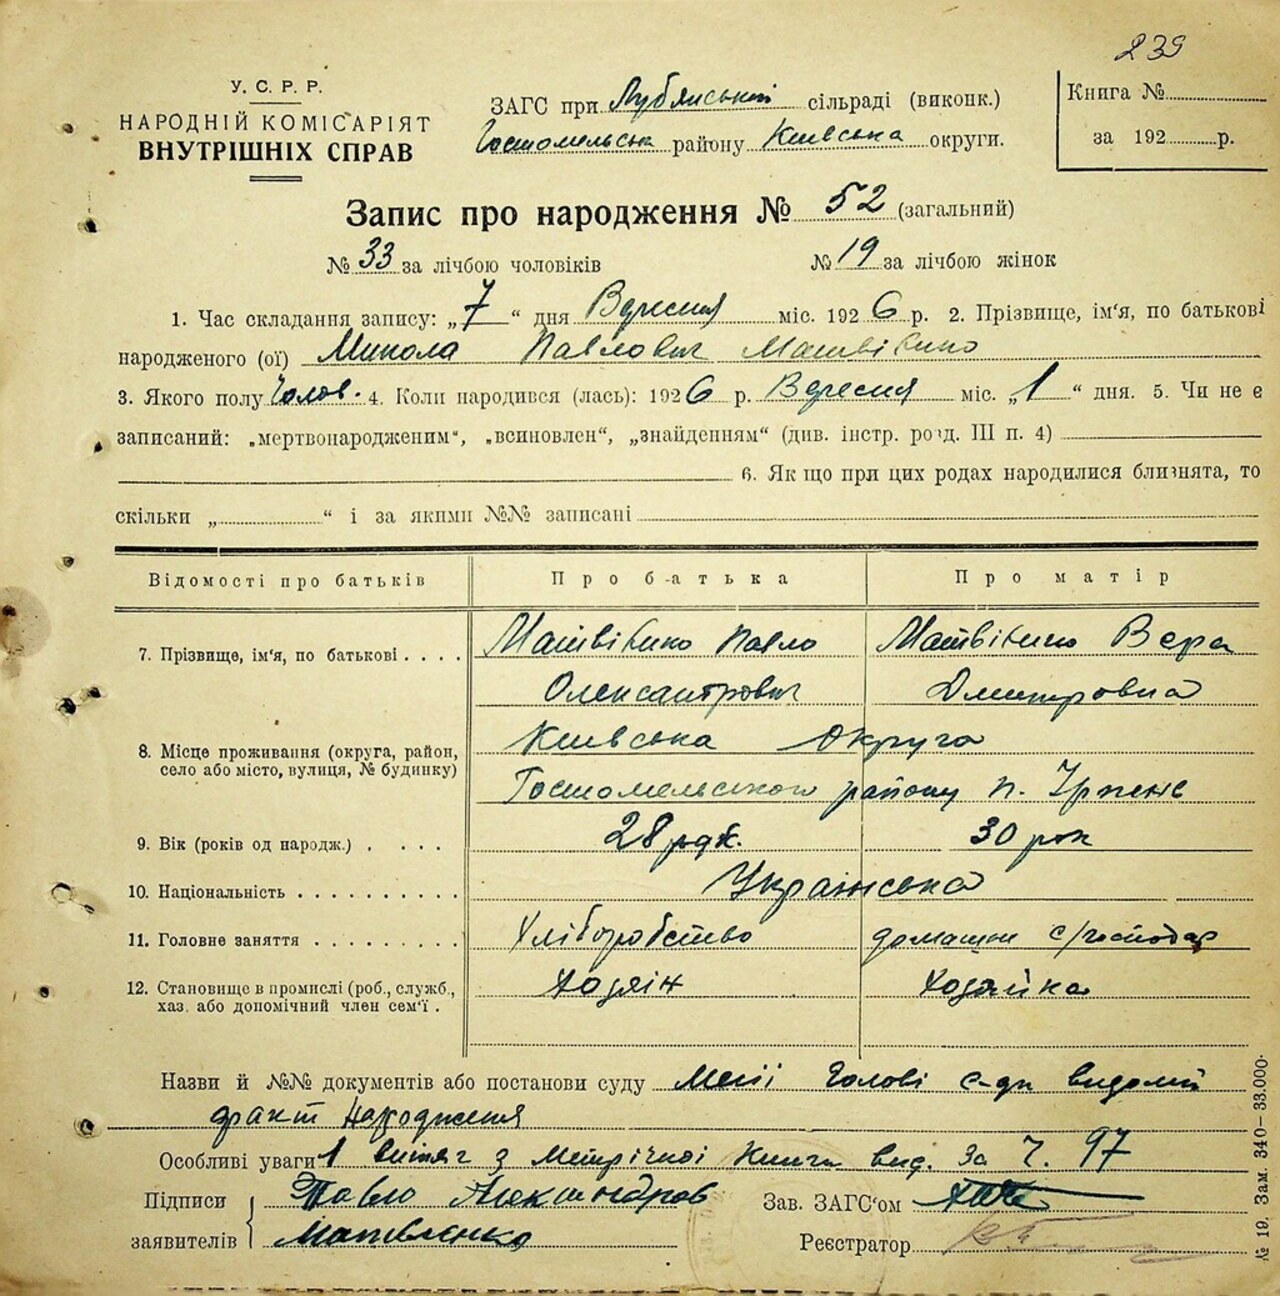 239
У. С. Р. Р.
НАРОДНІЙ КОМІСАРІЯТ
ВНУТРІШНІХ СПРАВ
ЗАГС при Лубянській сільраді (виконк.)
Гостомельська району Київська округи.
Книга №
за 192 р.
Запис про народження № 52 (загальний)
№ 33 за лічбою чоловіків № 19 за лічбою жінок
1. Час складання запису: „7“ дня Вересня міс. 1926 р. 2. Прізвище, ім'я, по батькові
народженого (ої) Микола Павлович Матвієнко
3. Якого полу Чолов. 4. Коли народився (лась): 1926 р. Вересня міс. „1“ дня. 5. Чи не є
записаний: „мертвонародженим“, „всиновлен“, „знайденням“ (див. інстр. розд. III п. 4)
6. Як що при цих родах народилися близнята, то
скільки „ “ і за якими №№ записані
Відомості про батьків Про батька Про матір
7. Прізвище, ім'я, по батькові . . . . Матвієнко Павло Матвієнко Вера
Олександрович Дмитровна
8. Місце проживання (округа, район, село або місто, вулиця, № будинку) Київська Округа
Гостомельського району п. Ірпень
9. Вік (років од народж.) . . . . 28 30 рок
10. Національність . . . . . . . . . . Українська
11. Головне заняття . . . . . . . . . Хліборобство домашнє с/господар
12. Становище в промислі (роб., служб., хаз. або допомічний член сем'ї . Хазяїн Хазяйка
Назви й №№ документів або постанови суду Мені Голові с-ди видомий
факт народження
Особливі уваги 1 витяг з метрічної Книги вид. за ч. 97
Підписи заявителів Павло Александров
Матвієнко
Зав. ЗАГС'ом
Реєстратор
№ 19. Зам. 340—33.000.